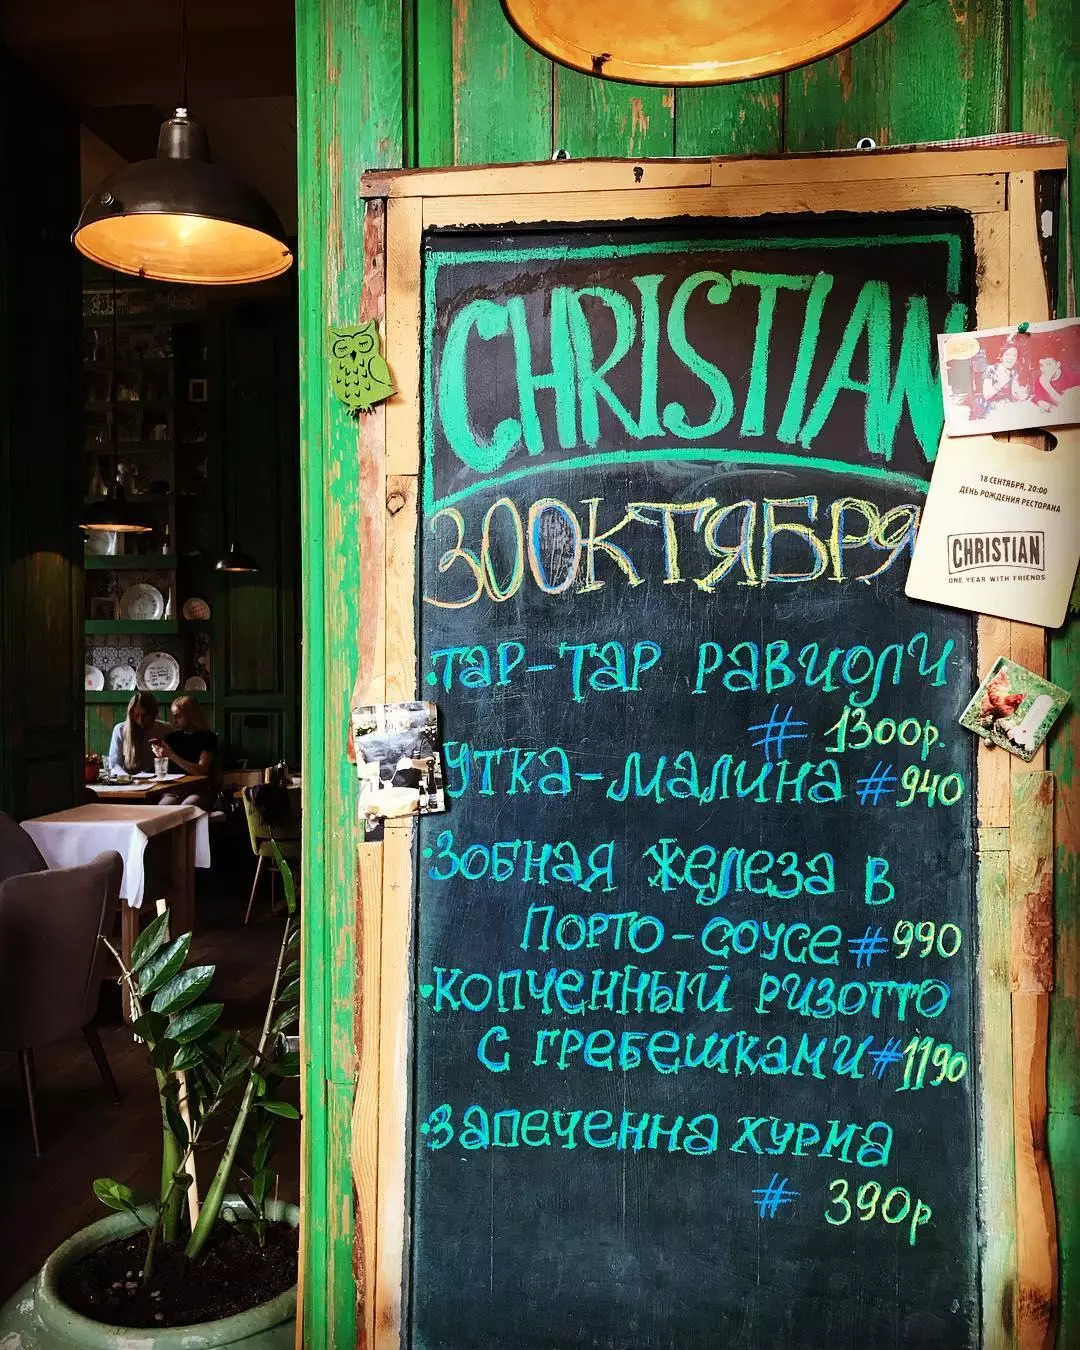 CHRISTIAN
30 ОКТЯБРЯ
18 СЕНТЯБРЯ, 20:00
ДЕНЬ РОЖДЕНИЯ РЕСТОРАНА
CHRISTIAN
ONE YEAR WITH FRIENDS
·ТАР-ТАР РАВИОЛИ
# 1300р.
УТКА-МАЛИНА # 940
·ЗОБНАЯ ЖЕЛЕЗА В
ПОРТО-СОУСЕ # 990
·КОПЧЕННЫЙ РИЗОТТО
С ГРЕБЕШКАМИ # 1190
·ЗАПЕЧЕННА ХУРМА
# 390р